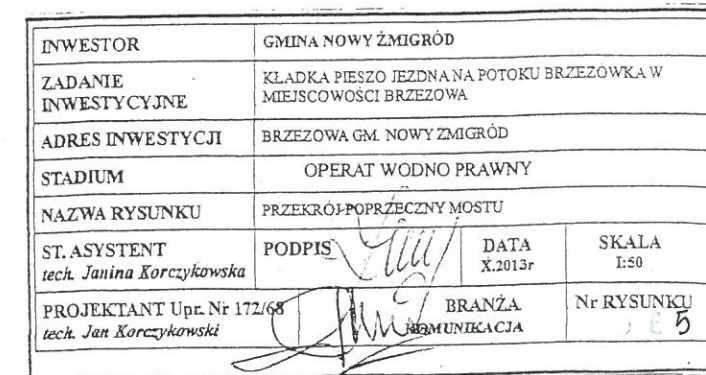 INWESTOR GMINA NOWY ŻMIGRÓD
ZADANIE INWESTYCYJNE KŁADKA PIESZO JEZDNA NA POTOKU BRZEZÓWKA W
MIEJSCOWOŚCI BRZEZOWA
ADRES INWESTYCJI BRZEZOWA GM. NOWY ŻMIGRÓD
STADIUM OPERAT WODNO PRAWNY
NAZWA RYSUNKU PRZEKRÓJ POPRZECZNY MOSTU
ST. ASYSTENT PODPIS DATA SKALA
tech. Janina Korczykowska X.2013r 1:50
PROJEKTANT Upr. Nr 172/68 BRANŻA Nr RYSUNKU
tech. Jan Korczykowski KOMUNIKACJA 5